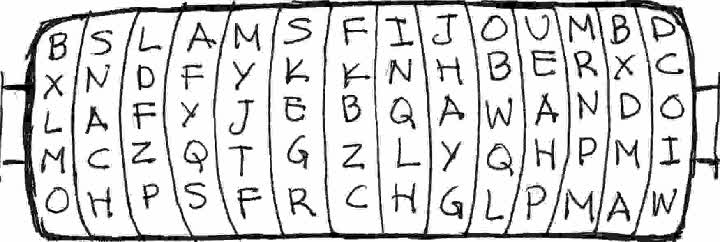 B S L A M S F I J O U M B D
X N D F Y K K N H B E R X C
L A F Y J E B Q A W A N D O
M C Z Q T G Z L Y Q H P M I
O H P S F R C H G L P M A W